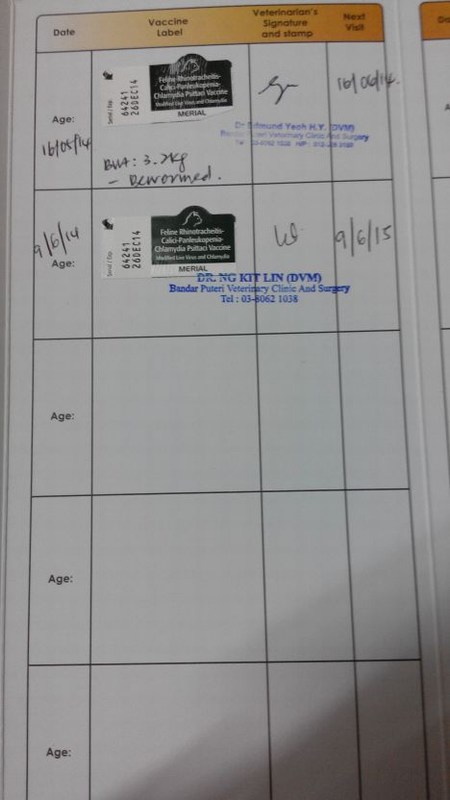 Date
Vaccine Label
Veterinarian's Signature and stamp
Next Visit
Age:
16/05/14
Serial / Exp.
64241
26DEC14
Feline Rhinotracheitis-
Calici-Panleukopenia-
Chlamydia Psittaci Vaccine
Modified Live Virus and Chlamydia
MERIAL
BW: 3.2kg
- Dewormed.
16/06/14
Dr Edmund Yeoh H.Y. (DVM)
Bandar Puteri Veterinary Clinic And Surgery
9/6/14
Age:
Serial / Exp.
64241
26DEC14
Feline Rhinotracheitis-
Calici-Panleukopenia-
Chlamydia Psittaci Vaccine
Modified Live Virus and Chlamydia
MERIAL
9/6/15
DR. NG KIT LIN (DVM)
Bandar Puteri Veterinary Clinic And Surgery
Tel : 03-8062 1038
Age:
Age:
Age: